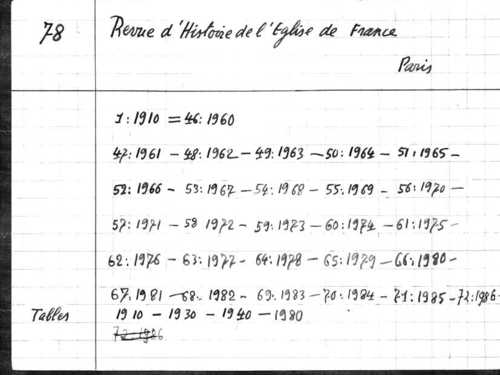 78 Revue d'Histoire de l'Eglise de France
Paris
1:1910 = 46:1960
47:1961 - 48:1962 - 49:1963 - 50:1964 - 51:1965 -
52:1966 - 53:1967 - 54:1968 - 55:1969 - 56:1970 -
57:1971 - 58 1972 - 59:1973 - 60:1974 - 61:1975 -
62:1976 - 63:1977 - 64:1978 - 65:1979 - 66:1980 -
67:1981 - 68:1982 - 69:1983 - 70:1984 - 71:1985 - 72:1986 -
Tables 1910 - 1930 - 1940 - 1980
72:1986